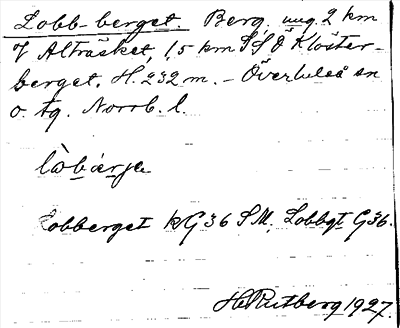 Lobb-berget. Berg. ung. 2 km
V Alträsket, 1,5 km SSÖ Klöster-
berget. H. 232 m. – Överluleå sn
o. tg. Norrb. l.
lòbærja
Lobberget kG36 SM, Lobbgt G36.
H Rutberg 1927.